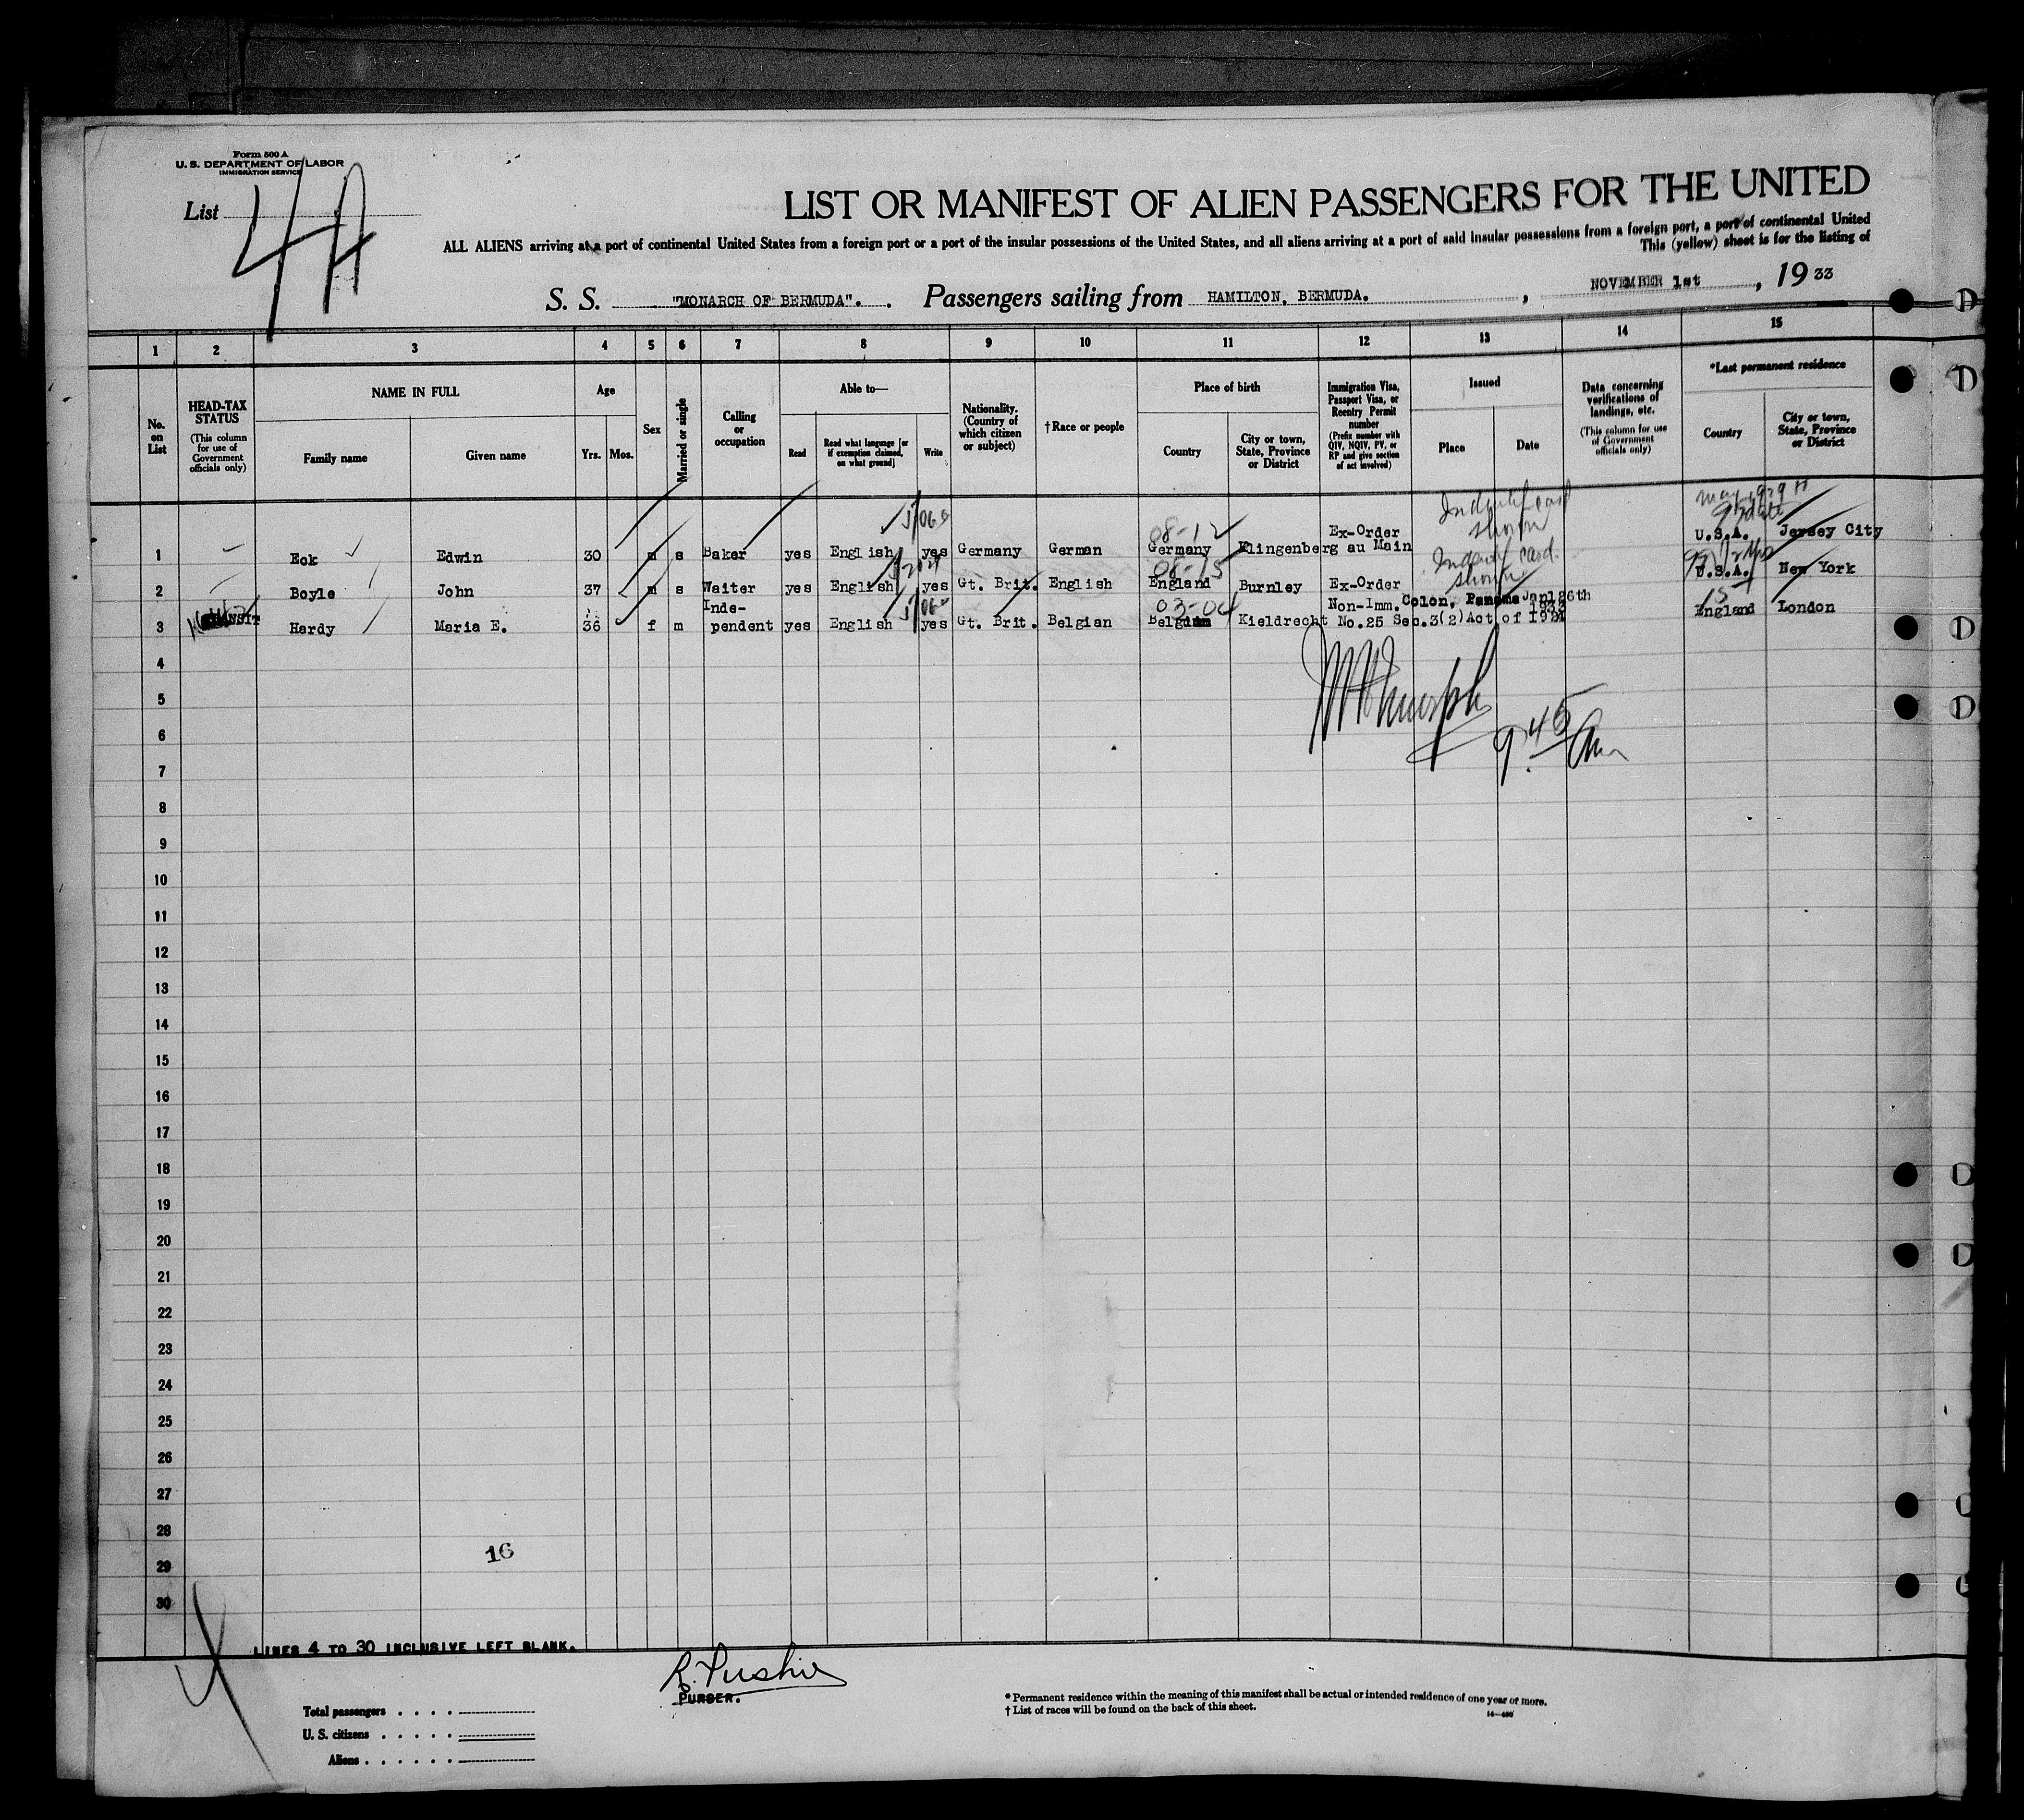 Form 500 A
U. S. DEPARTMENT OF LABOR
IMMIGRATION SERVICE
List 4A
LIST OR MANIFEST OF ALIEN PASSENGERS FOR THE UNITED
ALL ALIENS arriving at a port of continental United States from a foreign port or a port of the insular possessions of the United States, and all aliens arriving at a port of said insular possessions from a foreign port, a port of continental United
This (yellow) sheet is for the listing of
S. S. "MONARCH OF BERMUDA". Passengers sailing from HAMILTON, BERMUDA. , NOVEMBER 1st , 19 33
1 2 3 4 5 6 7 8 9 10 11 12 13 14 15
No. on List
HEAD-TAX STATUS
(This column for use of Government officials only)
NAME IN FULL
Family name
Given name
Age
Yrs.
Mos.
Sex
Married or single
Calling or occupation
Able to—
Read
Read what language [or if exemption claimed, on what ground]
Write
Nationality. (Country of which citizen or subject)
† Race or people
Place of birth
Country
City or town, State, Province or District
Immigration Visa, Passport Visa, or Reentry Permit number
(Prefix number with QIV, NQIV, PV, or RP and give section of act involved)
Issued
Place
Date
Data concerning verifications of landings, etc.
(This column for use of Government officials only)
*Last permanent residence
Country
City or town, State, Province or District
08-12
shown
1 Eck Edwin 30 m s Baker yes English yes Germany German Germany Klingenberg au Main Ex-Order U.S.A. Jersey City
card
shown
2 Boyle John 37 m s Waiter yes English yes Gt. Brit. English England Burnley Ex-Order U.S.A. New York
03-04
3 TRANSIT Hardy Maria E. 36 f m Inde-pendent yes English yes Gt. Brit. Belgian Belgium Kieldrecht Non-Imm. No.25 Sec.3(2)Act of 1924 Colon, Panama Jan 26th 1933 England London
9.45 am
4
5
6
7
8
9
10
11
12
13
14
15
16
17
18
19
20
21
22
23
24
25
26
27
28
16
29
30
LINES 4 TO 30 INCLUSIVE LEFT BLANK.
PURSER.
Total passengers
U. S. citizens
Aliens
* Permanent residence within the meaning of this manifest shall be actual or intended residence of one year or more.
† List of races will be found on the back of this sheet.